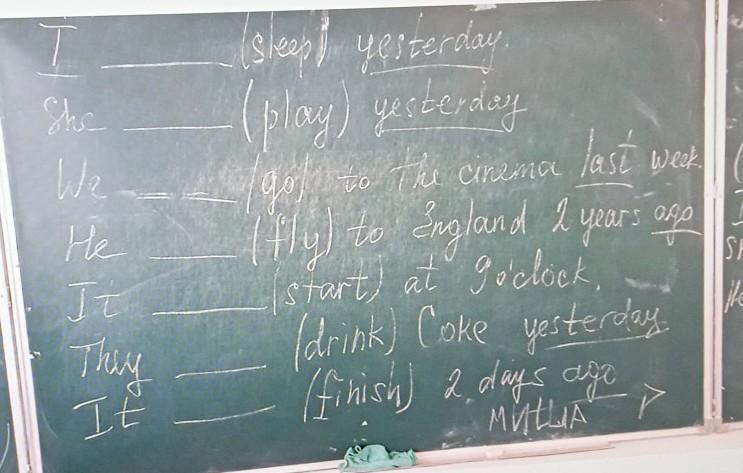 I ______ (sleep) yesterday.
She ______ (play) yesterday
We ______ (go) to The cinema last week.
He ______ (fly) to England 2 years ago
It ______ (start) at 9 o'clock.
They ______ (drink) Coke yesterday
It ______ (finish) 2 days ago